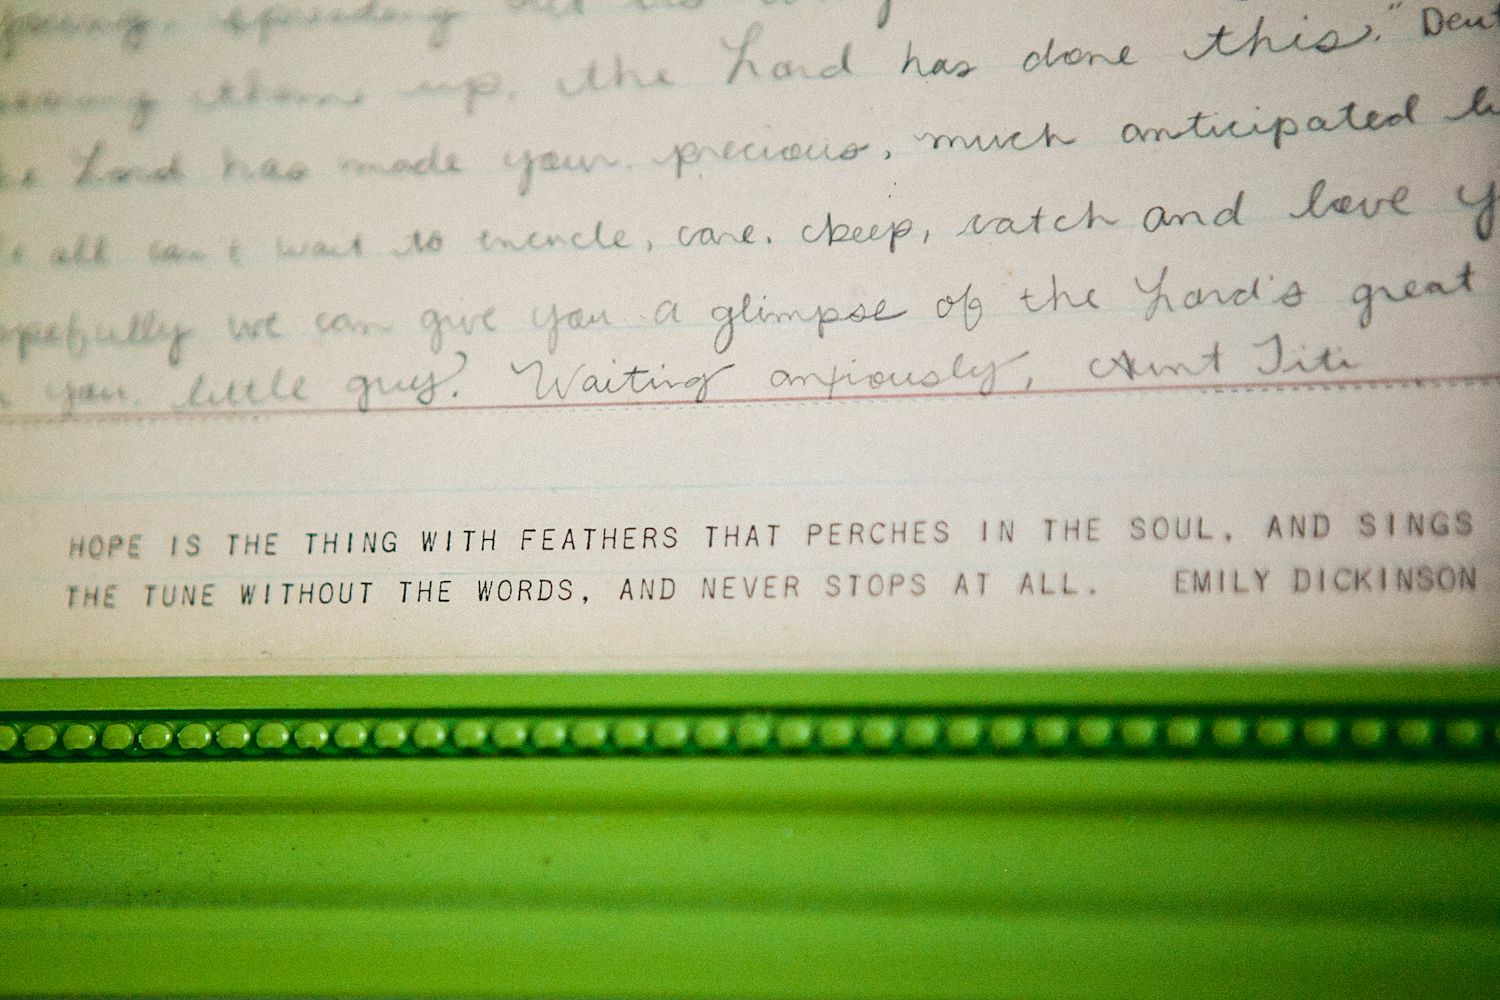 young, spreading out its
them up, the Lord has done this." Deut
Lord has made your precious, much anticipated
all can't wait to encircle, care, keep, watch and love
we can give you a glimpse of the Lord's great
you, little guy! Waiting anxiously, Aunt Titi
HOPE IS THE THING WITH FEATHERS THAT PERCHES IN THE SOUL, AND SINGS
THE TUNE WITHOUT THE WORDS, AND NEVER STOPS AT ALL. EMILY DICKINSON